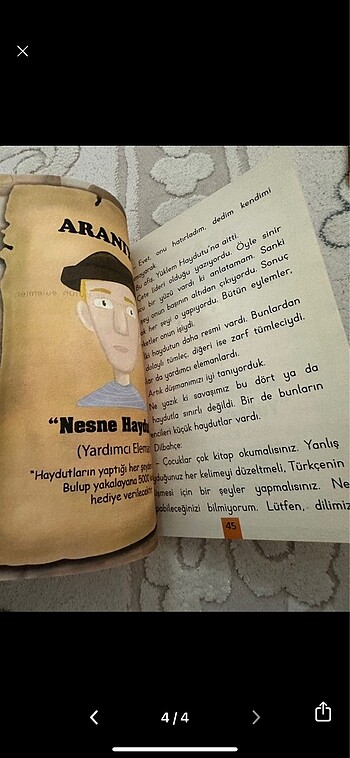 ARANI
"Nesne Haydu
(Yardımcı Eleman
"Haydutların yaptığı her şeyden
Bulup yakalayana 5000
hediye verilecektir
Evet, onu hatırladım, dedim kendimi
Bu afiş, Yüklem Haydutu'na aitti.
Çete lideri olduğu yazıyordu. Öyle sinir
bir yüzü vardı ki anlatamam. Sanki
şey onun başının altından çıkıyordu. Sonuç
her şeyi o yapıyordu. Bütün eylemler,
onun işiydi.
İki haydutun daha resmi vardı. Bunlardan
dolaylı tümleç, diğeri ise zarf tümleciydi.
da yardımcı elemanlardı.
Artık düşmanımızı iyi tanıyorduk.
Ne yazık ki savaşımız bu dört ya da
haydutla sınırlı değildi. Bir de bunların
küçük haydutlar vardı.
Dilbahçe:
– Çocuklar çok kitap okumalısınız. Yanlış
duyduğunuz her kelimeyi düzeltmeli, Türkçenin
için bir şeyler yapmalısınız. Ne
yapabileceğinizi bilmiyorum. Lütfen, dilimiz
45
4/4